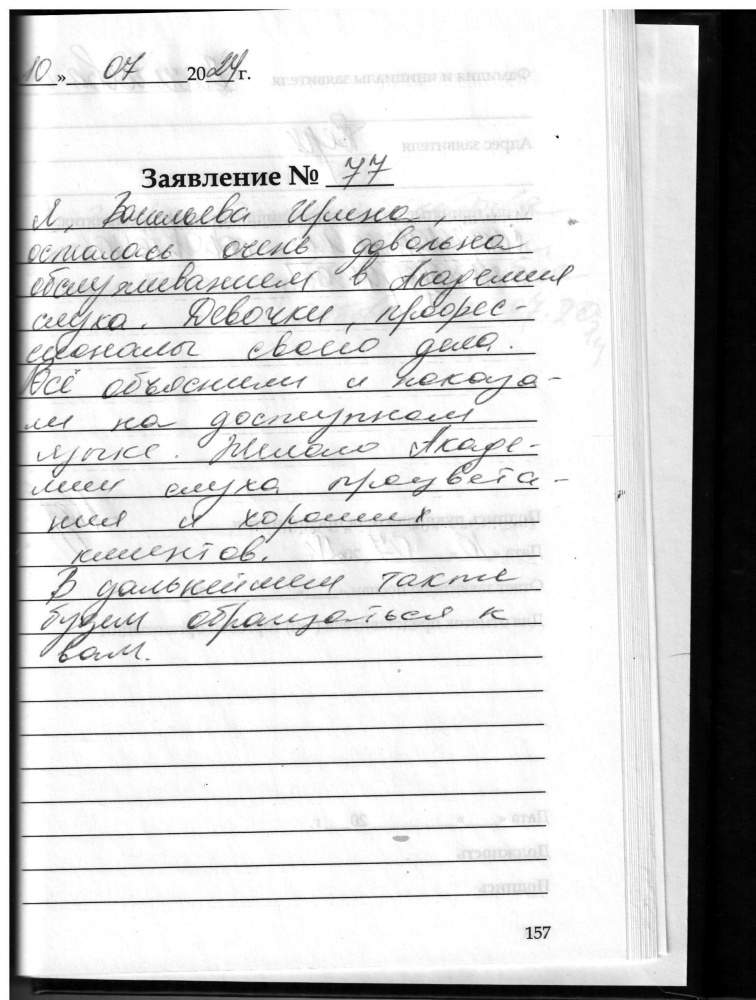 10 » 07 2024 г.
Заявление № 77
Я, Васильева Ирина
осталась очень довольна
обслуживанием в Академия
слуха. Девочки, профес-
сионалы своего дела.
Всё объяснили и показа-
ли на доступном
языке. Желаю Акаде-
мии слуха процвета-
ния и хороших
клиентов.
В дальнейшем также
будем обращаться к
вам.
157